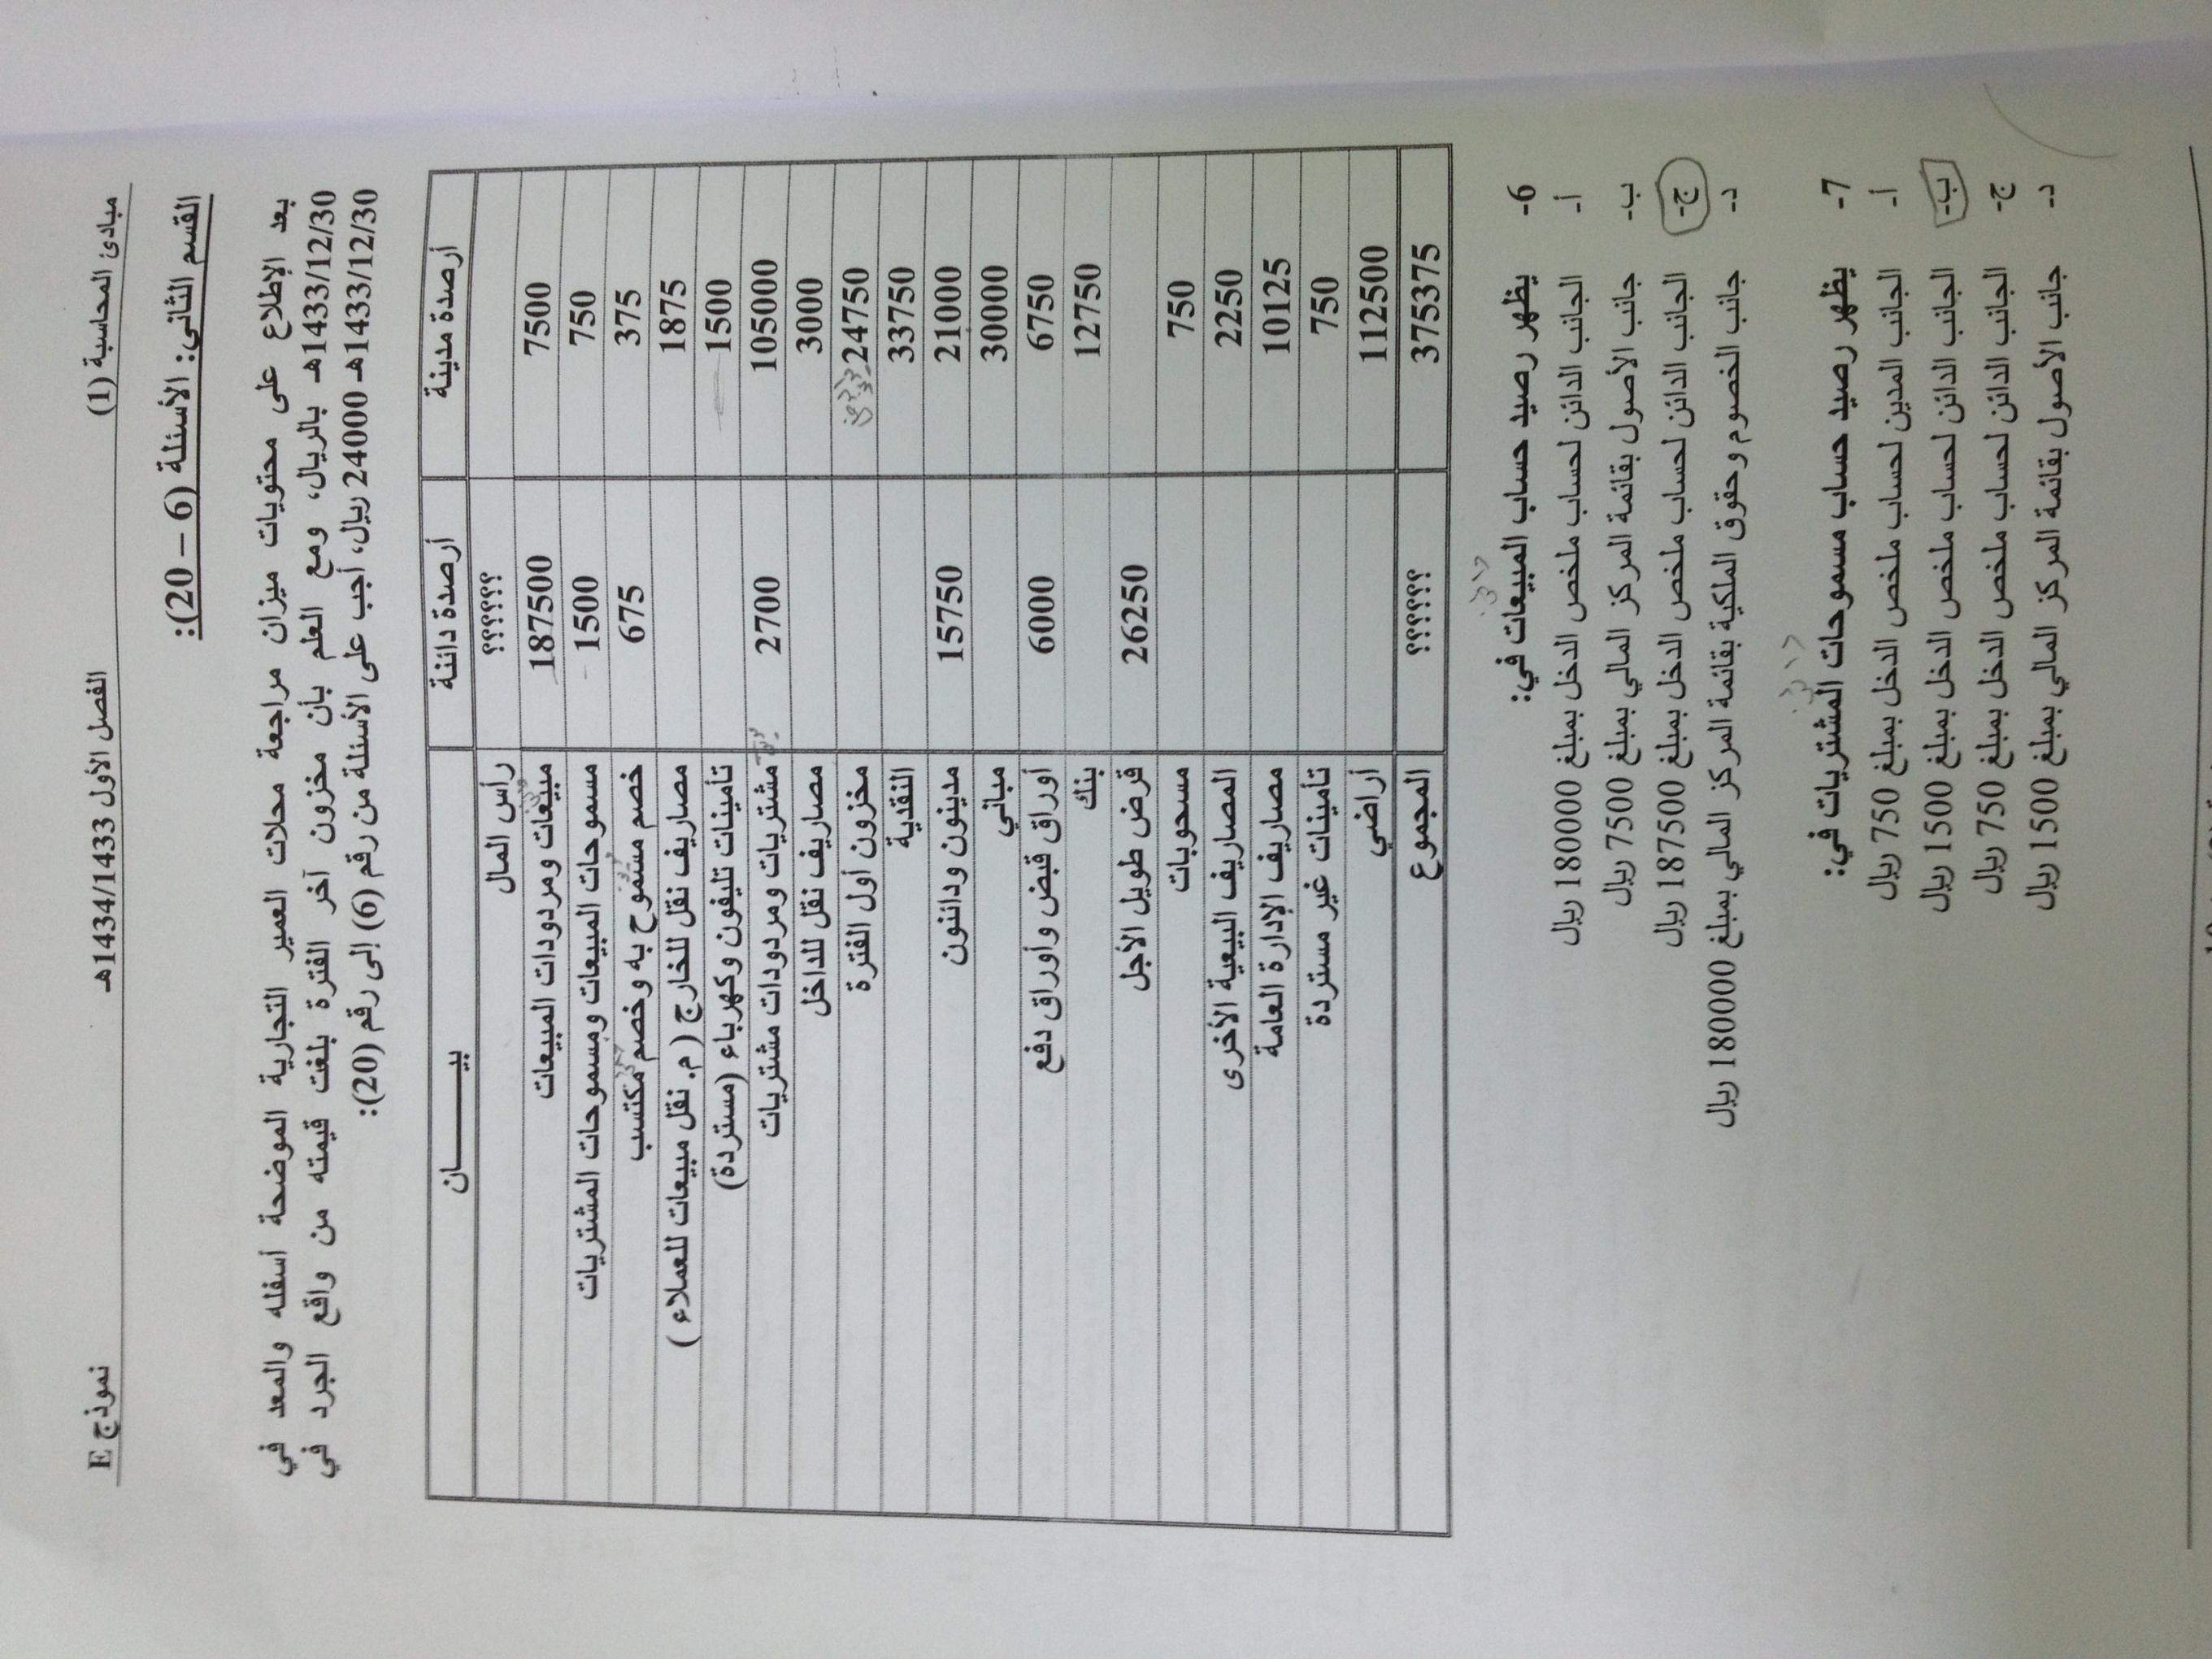 مبادئ المحاسبة (1) الفصل الأول 1434/1433هـ نموذج E
القسم الثاني: الأسئلة (6 – 20):
بعد الإطلاع على محتويات ميزان مراجعة محلات العمير التجارية الموضحة أسفله والمعد في
1433/12/30هـ بالريال، ومع العلم بأن مخزون آخر الفترة بلغت قيمته من واقع الجرد في
1433/12/30هـ 24000 ريال، أجب على الأسئلة من رقم (6) إلى رقم (20):
أرصدة مدينة أرصدة دائنة بيـــــــان
؟؟؟؟؟؟ رأس المال
7500 187500 مبيعات ومردودات المبيعات
750 1500 مسموحات المبيعات ومسموحات المشتريات
375 675 خصم مسموح به وخصم مكتسب
1875 مصاريف نقل للخارج ( م. نقل مبيعات للعملاء )
1500 تأمينات تليفون وكهرباء (مستردة)
105000 2700 مشتريات ومردودات مشتريات
3000 مصاريف نقل للداخل
24750 مخزون أول الفترة
33750 النقدية
21000 15750 مدينون ودائنون
30000 مباني
6750 6000 أوراق قبض وأوراق دفع
12750 بنك
26250 قرض طويل الأجل
750 مسحوبات
2250 المصاريف البيعية الأخرى
10125 مصاريف الإدارة العامة
750 تأمينات غير مستردة
112500 أراضي
375375 ؟؟؟؟؟؟ المجموع
6- يظهر رصيد حساب المبيعات في:
أ- الجانب الدائن لحساب ملخص الدخل بمبلغ 180000 ريال
ب- جانب الأصول بقائمة المركز المالي بمبلغ 7500 ريال
ج- الجانب الدائن لحساب ملخص الدخل بمبلغ 187500 ريال
د- جانب الخصوم وحقوق الملكية بقائمة المركز المالي بمبلغ 180000 ريال
7- يظهر رصيد حساب مسموحات المشتريات في:
أ- الجانب المدين لحساب ملخص الدخل بمبلغ 750 ريال
ب- الجانب الدائن لحساب ملخص الدخل بمبلغ 1500 ريال
ج- الجانب الدائن لحساب ملخص الدخل بمبلغ 750 ريال
د- جانب الأصول بقائمة المركز المالي بمبلغ 1500 ريال